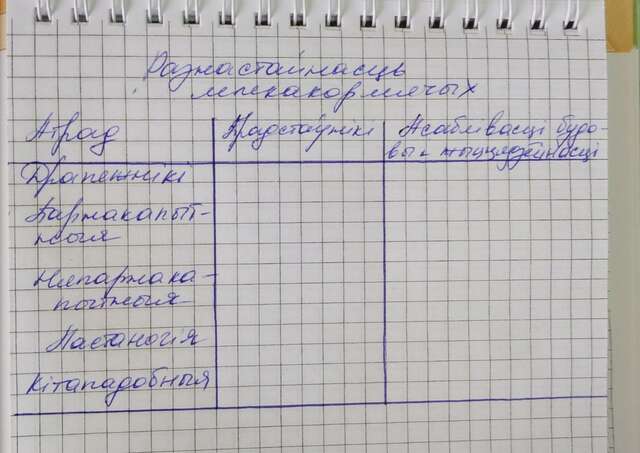 Разнастайнасць
млекакормячых
Атрад
Прадстаўнікі
Асаблівасці будо-
вы і жыццядзейнасці
Драпежнікі
Парнакапыт-
ныя
Няпарнака-
пытныя
Ластаногія
Кітападобныя